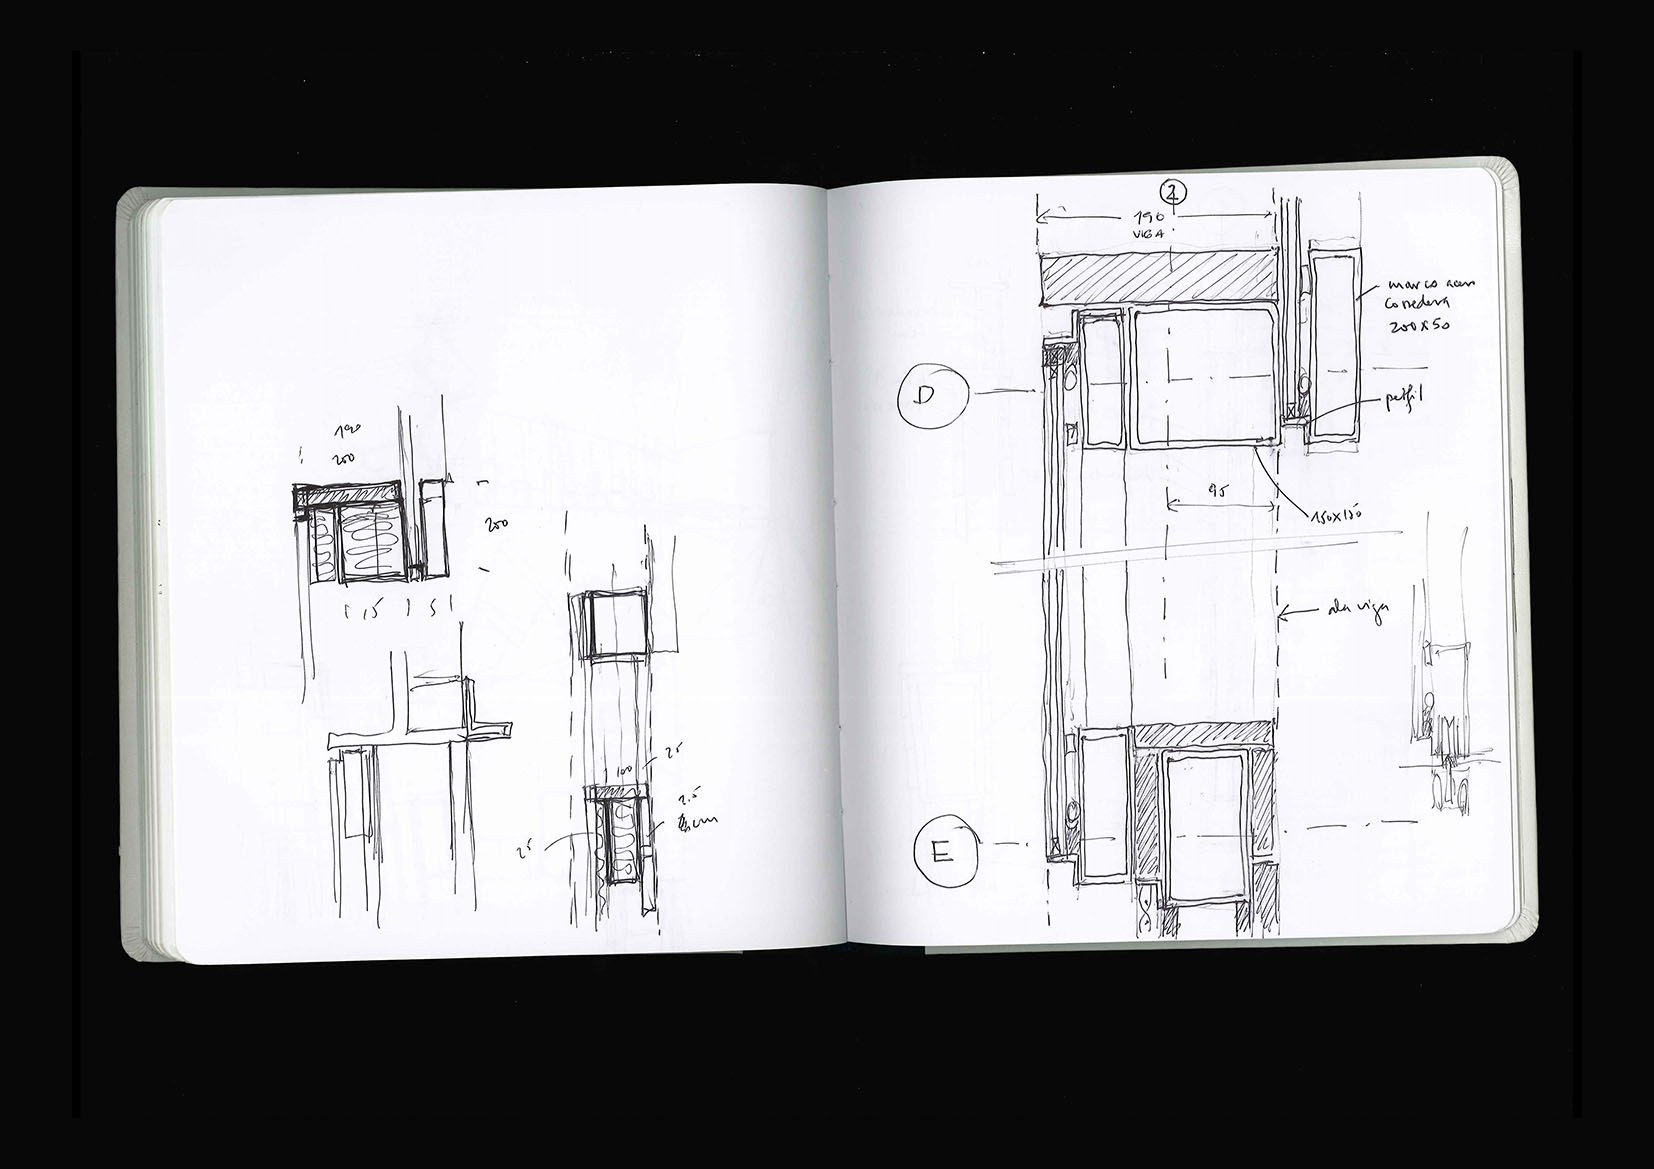 190
200
200
15
5
25
100
2.5
cm
25
2
190
VIGA
marco
corredera
200x50
D
perfil
95
150x150
ala viga
E